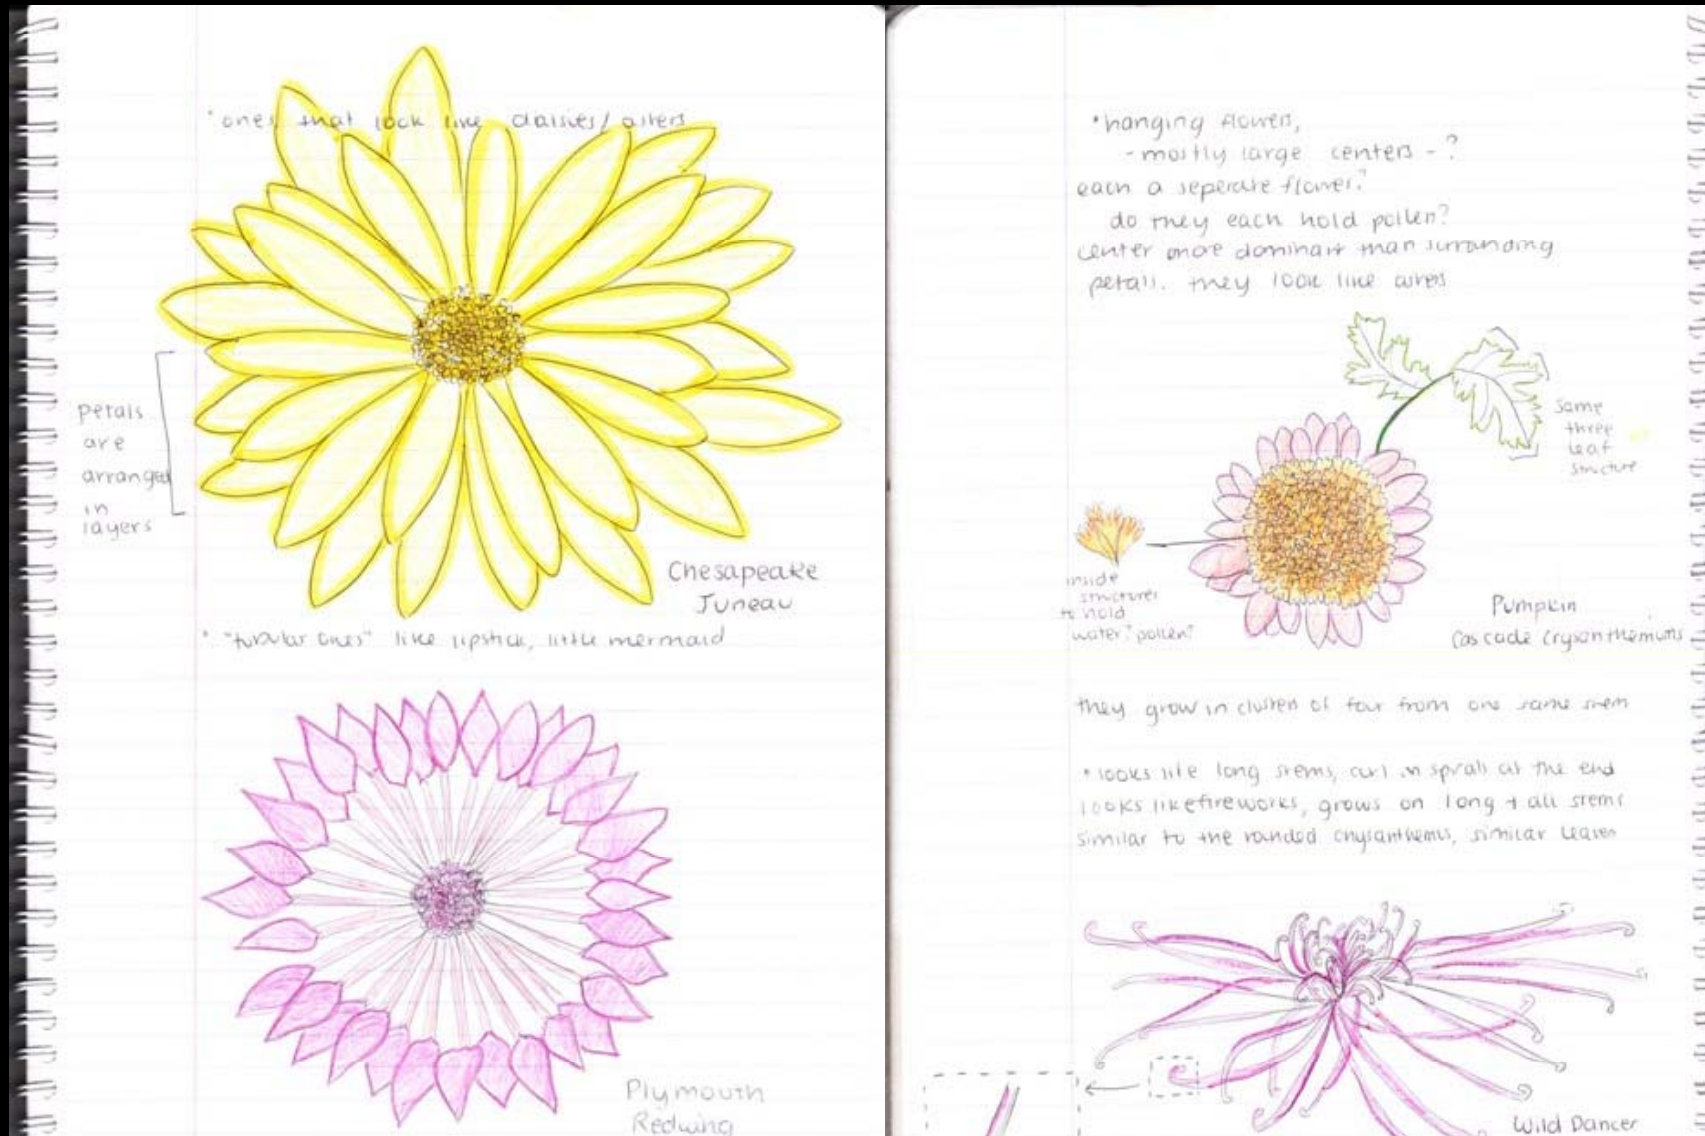 *ones that look like daisies/asters
petals
are
arranged
in
layers
Chesapeake
Juneau
* "tubular ones" like lipstick, little mermaid
Plymouth
Redwing
*hanging flowers,
- mostly large centers - ?
each a seperate flower?
do they each hold pollen?
center more dominant than surrounding
petals. they look like asters
Same
three
leaf
structure
inside
structures
to hold
water? pollen?
Pumpkin
Cascade Crysanthemums
they grow in clusters of four from one same stem
* looks like long stems, curl in spirals at the end
looks like fireworks, grows on long + all stems
similar to the rounded chysanthemus, similar leaves
Wild Dancer